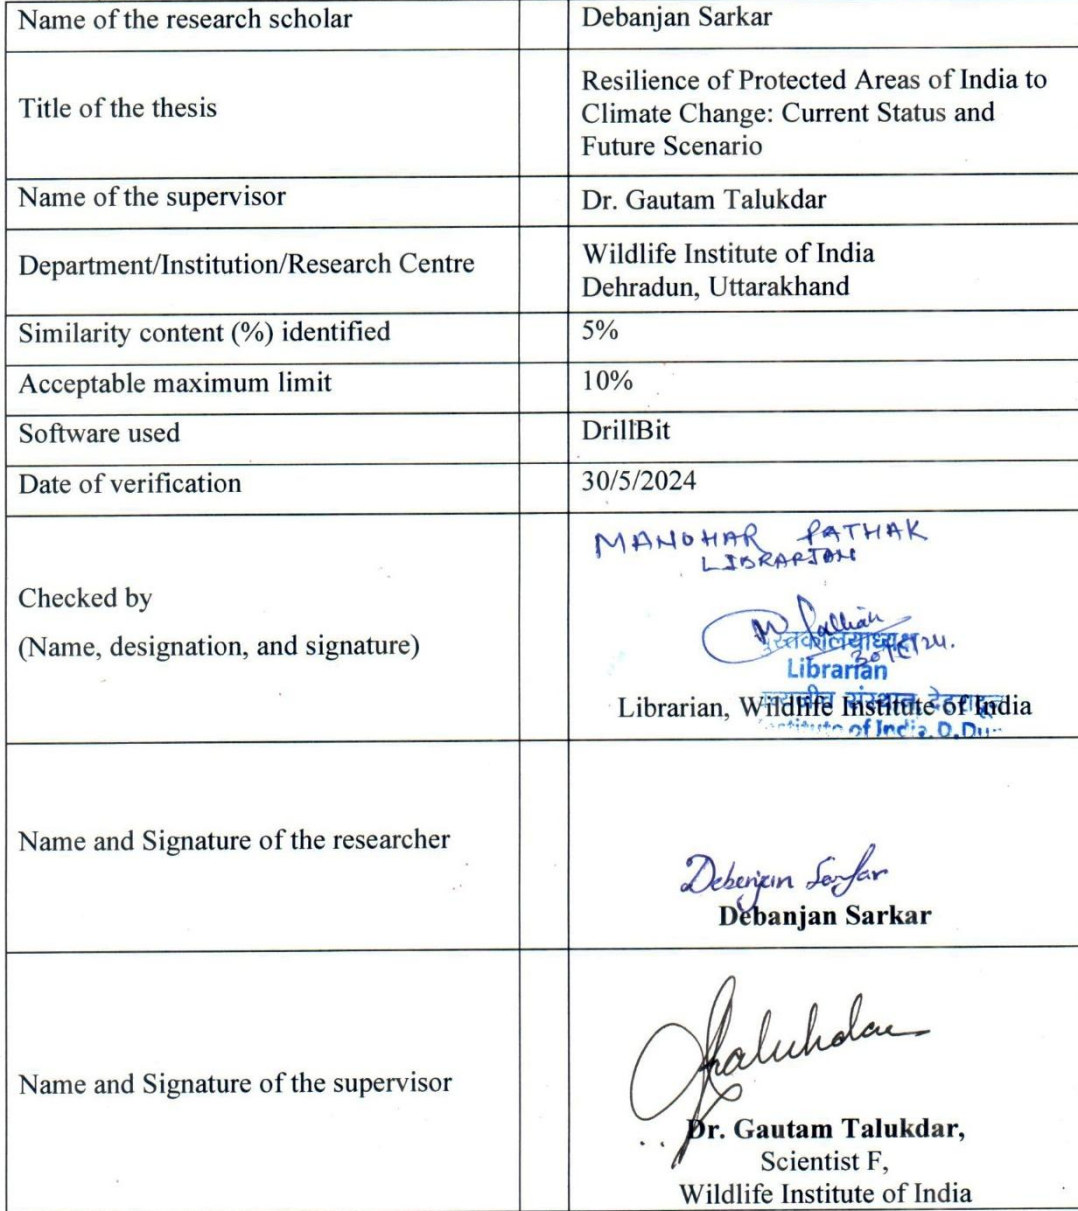 Name of the research scholar
Debanjan Sarkar
Title of the thesis
Resilience of Protected Areas of India to
Climate Change: Current Status and
Future Scenario
Name of the supervisor
Dr. Gautam Talukdar
Department/Institution/Research Centre
Wildlife Institute of India
Dehradun, Uttarakhand
Similarity content (%) identified
5%
Acceptable maximum limit
10%
Software used
DrillBit
Date of verification
30/5/2024
Checked by
(Name, designation, and signature)
MANOHAR PATHAK
LIBRARIAN
पुस्तकालयाध्यक्ष
Librarian
Librarian, Wildlife Institute of India
संस्थान
of India, D.
Name and Signature of the researcher
Debanjan Sarkar
Debanjan Sarkar
Name and Signature of the supervisor
Dr. Gautam Talukdar,
Scientist F,
Wildlife Institute of India